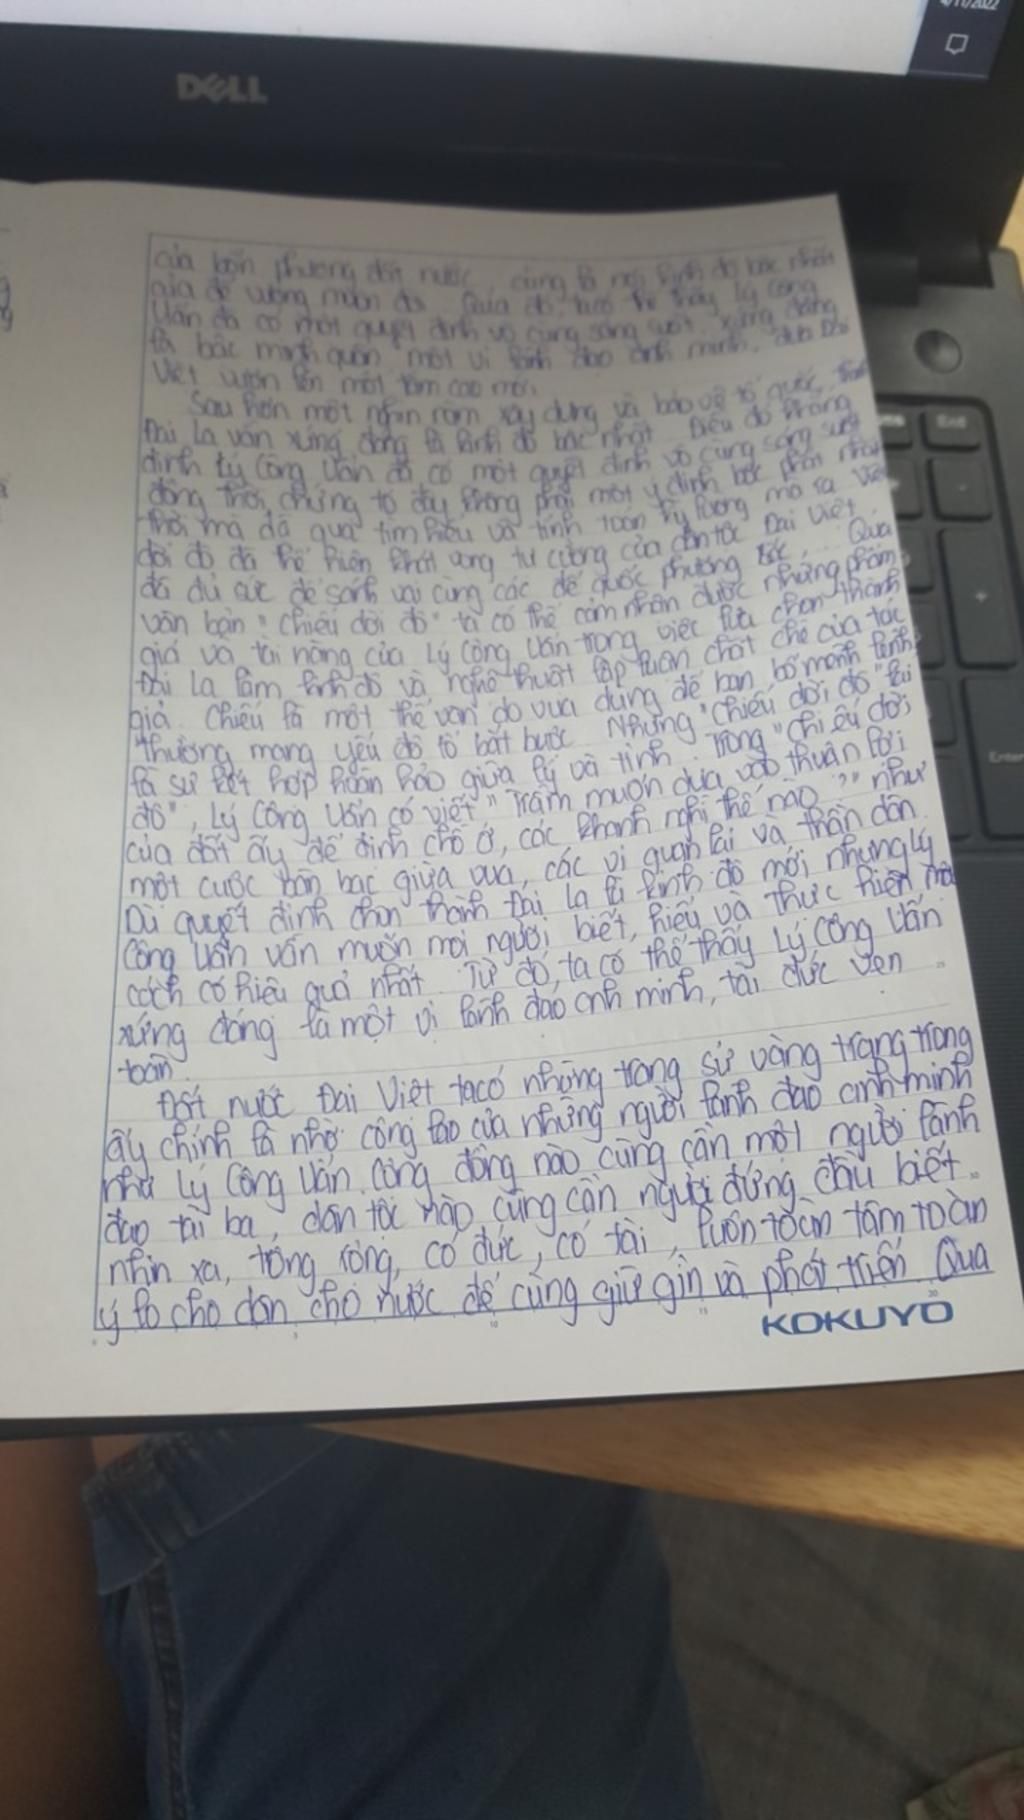 4/11/2022
DELL
của bốn phương đất nước, cũng là nơi kinh đô bậc nhất
của đế vương muôn đời. Qua đó, ta có thể thấy Lý Công
Uẩn đã có một quyết định vô cùng sáng suốt, xứng đáng
là bậc minh quân, một vị lãnh đạo anh minh, đưa Đại
Việt vươn lên một tầm cao mới.
Sau hơn một nghìn năm xây dựng và bảo vệ tổ quốc,
Đại La vẫn xứng đáng là kinh đô bậc nhất. Điều đó khẳng
định Lý Công Uẩn đã có một quyết định vô cùng sáng suốt
đồng thời, chứng tỏ đây không phải một ý định bộc phát nhất
thời mà đã qua tìm hiểu và tính toán kỹ lưỡng mà ra. Việc
dời đô đã thể hiện khát vọng tự cường của dân tộc Đại Việt
đã đủ sức để sánh vai cùng các đế quốc phương Bắc,... Qua
văn bản "chiếu dời đô" ta có thể cảm nhận được những phẩm
giá và tài năng của Lý Công Uẩn trong việc lựa chọn thành
Đại La làm kinh đô và nghệ thuật lập luận chặt chẽ của tác
giả. Chiếu là một thể văn do vua dùng để ban bố mệnh lệnh,
thường mang yếu đô tố bắt buộc. Nhưng "Chiếu dời đô" lại
là sự kết hợp hoàn hảo giữa lý và tình. Trong "Chiếu dời
đô", Lý Công Uẩn có viết "Trẫm muốn dựa vào thuận lợi
của đất ấy để định chỗ ở, các khanh nghĩ thế nào?" như
một cuộc bàn bạc giữa vua, các vị quan lại và thần dân.
Dù quyết định chọn thành Đại La là kinh đô mới nhưng Lý
Công Uẩn vẫn muốn mọi người biết, hiểu và thực hiện một
cách có hiệu quả nhất. Từ đó, ta có thể thấy Lý Công Uẩn
xứng đáng là một vị lãnh đạo anh minh, tài đức vẹn
toàn.
Đất nước Đại Việt ta có những trang sử vàng trang trọng
ấy chính là nhờ công lao của những người lãnh đạo anh minh
như Lý Công Uẩn. Cộng đồng nào cũng cần một người lãnh
đạo tài ba, dân tộc nào cũng cần người đứng đầu biết
nhìn xa, trông rộng, có đức, có tài, luôn toàn tâm toàn
ý lo cho dân cho nước để cùng giữ gìn và phát triển. Qua
KOKUYO
Enter